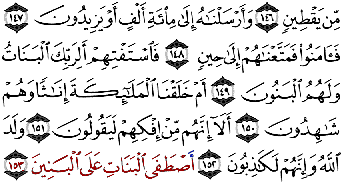 مِّن يَقْطِينٍ ﴿١٤٦﴾ وَأَرْسَلْنَٰهُ إِلَىٰ مِا۟ئَةِ أَلْفٍ أَوْ يَزِيدُونَ ﴿١٤٧﴾
فَـَٔامَنُوا۟ فَمَتَّعْنَٰهُمْ إِلَىٰ حِينٍ ﴿١٤٨﴾ فَٱسْتَفْتِهِمْ أَلِرَبِّكَ ٱلْبَنَاتُ
وَلَهُمُ ٱلْبَنُونَ ﴿١٤٩﴾ أَمْ خَلَقْنَا ٱلْمَلَٰٓئِكَةَ إِنَٰثًا وَهُمْ
شَٰهِدُونَ ﴿١٥٠﴾ أَلَآ إِنَّهُم مِّنْ إِفْكِهِمْ لَيَقُولُونَ ﴿١٥١﴾ وَلَدَ
ٱللَّهُ وَإِنَّهُمْ لَكَٰذِبُونَ ﴿١٥٢﴾ أَصْطَفَى ٱلْبَنَاتِ عَلَى ٱلْبَنِينَ ﴿١٥٣﴾